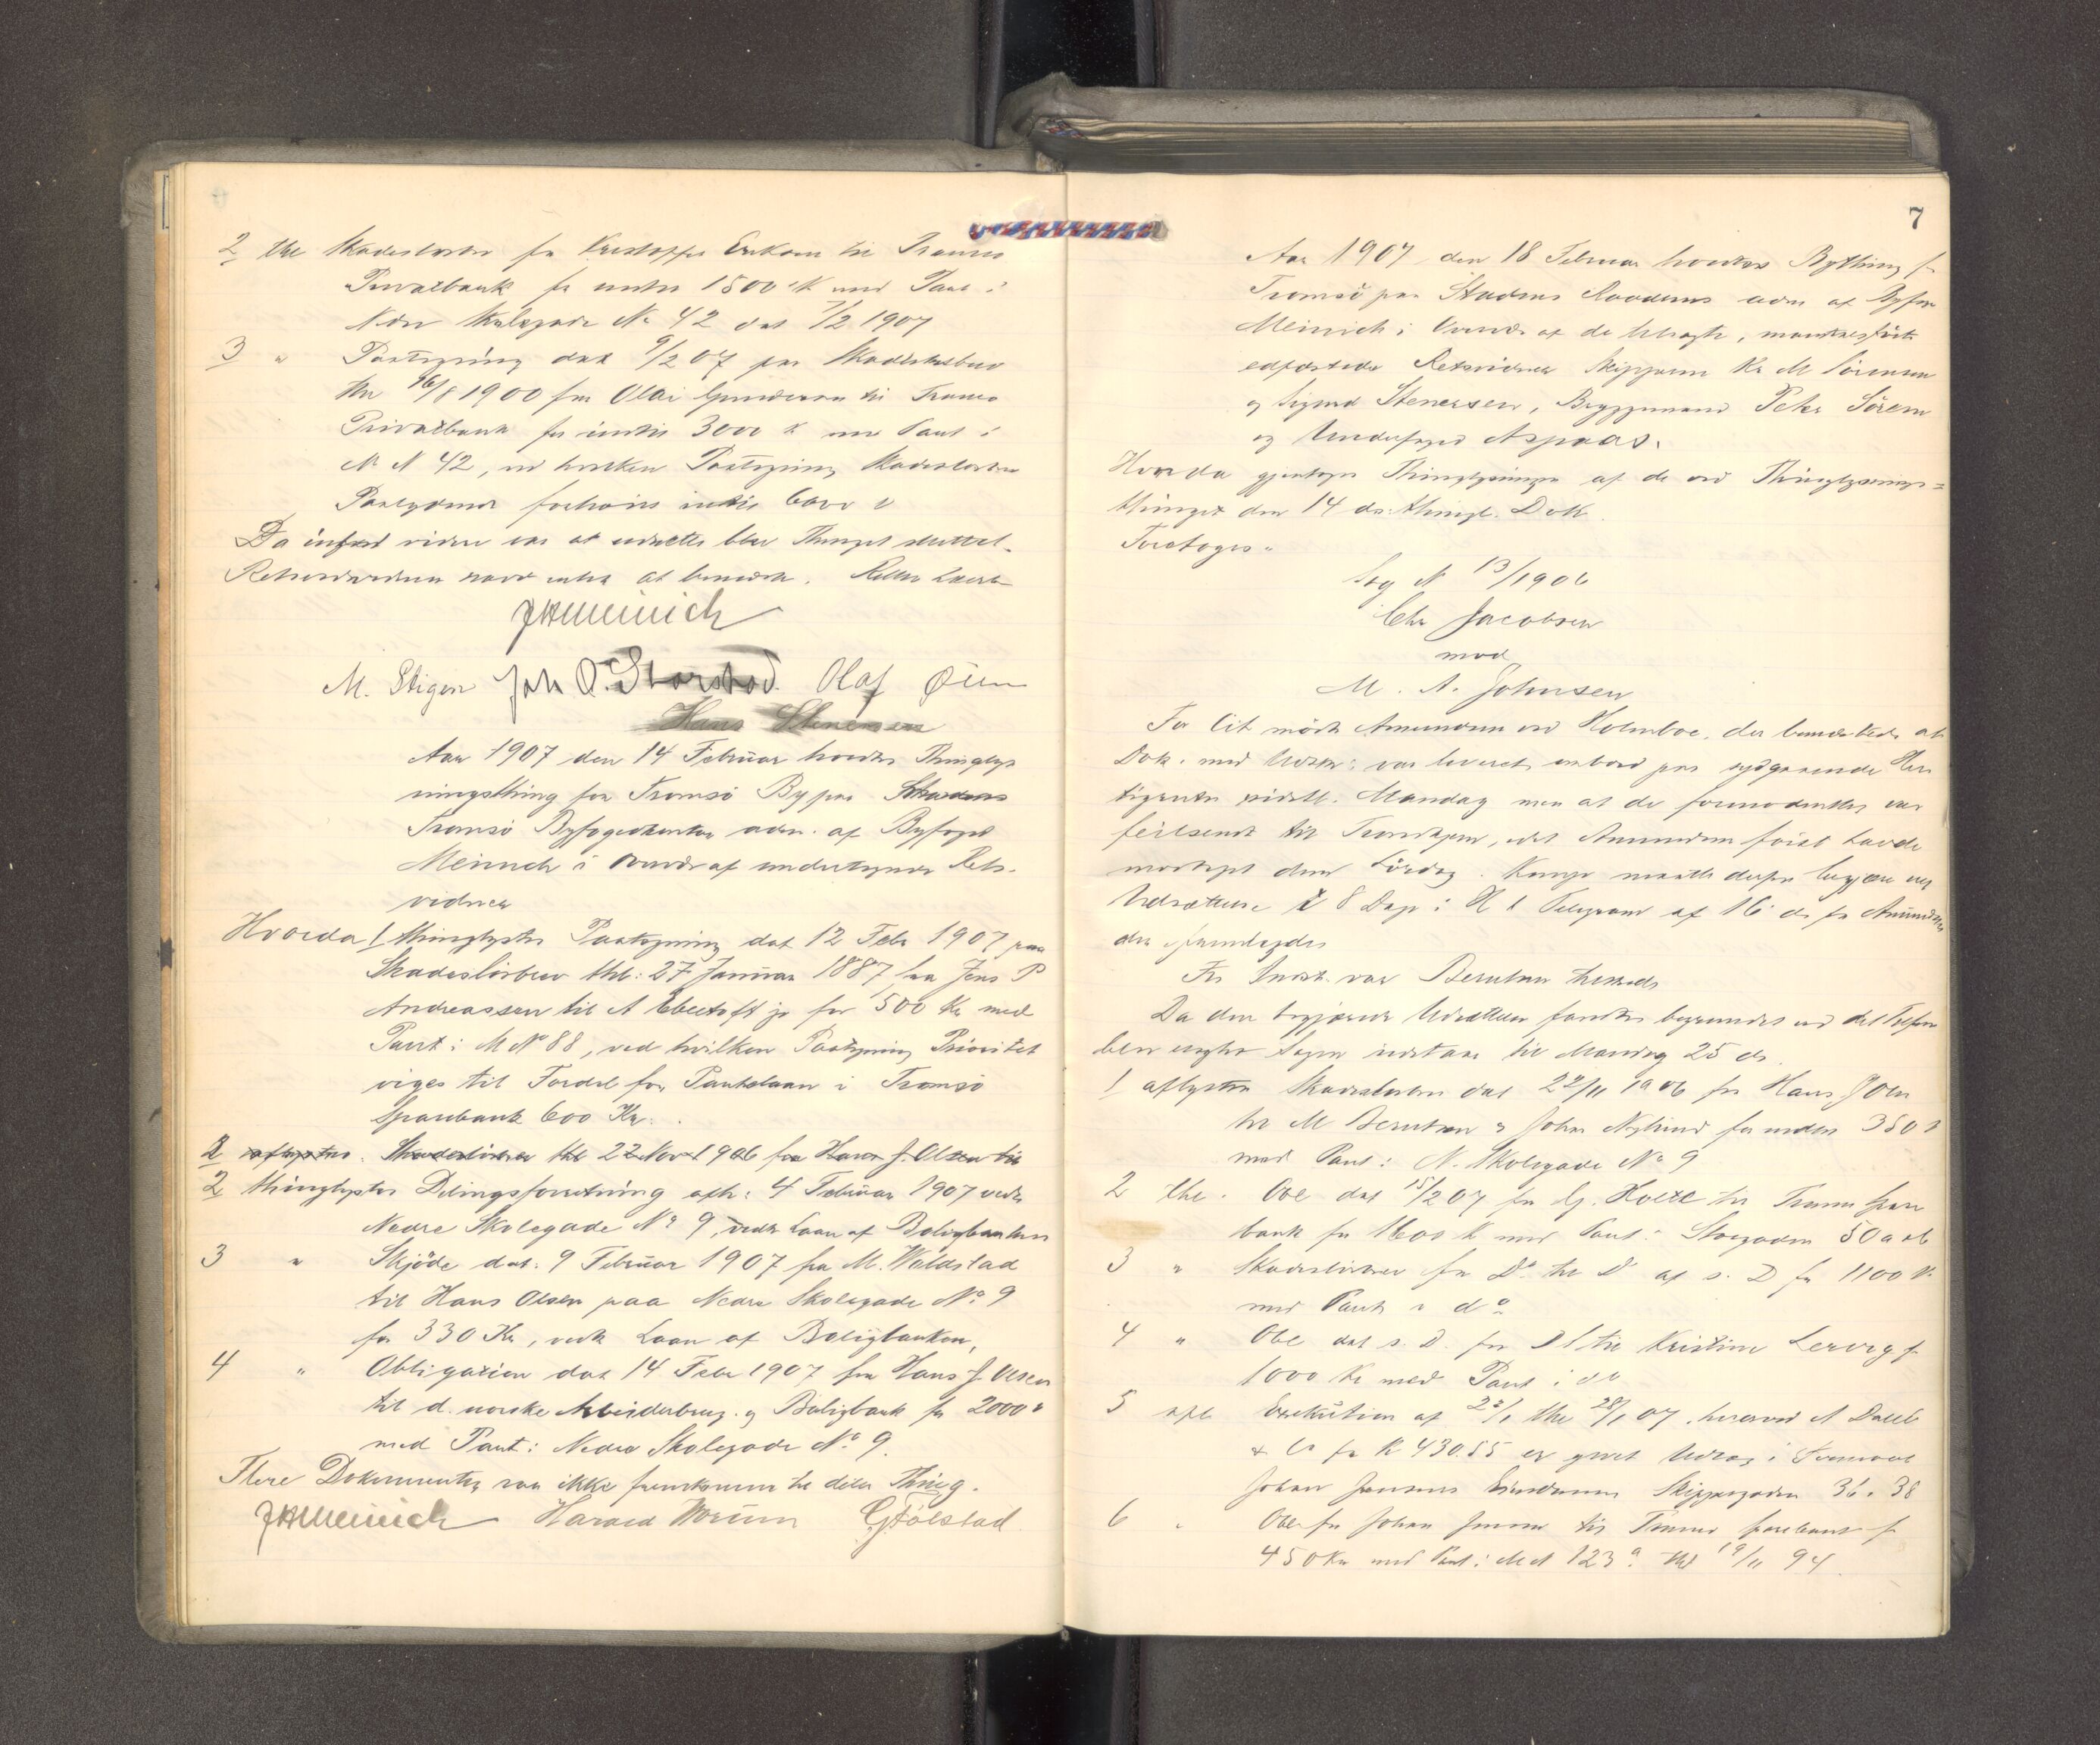 2 thl Skadesløsbr fra Kristoffer Eriksen til Tromsø
Privatbank for indtil 1500 K med Pant i
Ndr Skolegade No 42 dat 7/2 1907
3 " Paategning dat 9/2 07 paa Skadesløsbrev
thl 16/8 1900 fra Olai Gundersen til Tromsø
Privatbank for indtil 3000 K med Pant i
M N 42, ved hvilken Paategning Skadesløsbr
Paalydende forhøies indtil 6000 K
Da intet videre var at udrette blev Thinget sluttet.
Retsvidnerne havde intet at bemærke. Retten hævet
JHMeinich
M. Stigen Joh O. Storstad Olaf Øien
Hans Stenersen
Aar 1907 den 14 Februar holdtes Thinglys
ningsthing for Tromsø By paa Stadens
Tromsø Byfogedkontor adm. af Byfoged
Meinich i Overvær af undertegnede Rets-
vidner
Hvorda 1 thinglystes Paategning dat 12 Febr 1907 paa
Skadesløsbrev thl: 27 Januar 1887 fra Jens P
Andreassen til A Ebeltoft jr for 500 Kr med
Pant i M No 88, ved hvilken Paategning Prioritet
viges til Fordel for Pantelaan i Tromsø
Sparebank 600 Kr.
2 aflystes. Skadesløsbrev thl 22 Nov 1906 fra Hans J. Olsen til
2 thinglystes Delingsforretning afh: 4 Februar 1907 vedr
Nedre Skolegade No 9, vedr Laan af Boligbanken
3 " Skjøde dat. 9 Februar 1907 fra M. Waldstad
til Hans Olsen paa Nedre Skolegade No 9
for 330 Kr, vedr Laan af Boligbanken,
4 " Obligation dat 14 Febr 1907 fra Hans J. Olsen
til d. norske Arbeiderbrug. og Boligbank for 2000 K
med Pant i Nedre Skolegade No 9.
Flere Dokumenter var ikke fremkommen til dette Thing.
JHMeinich Harald G Følstad
7
Aar 1907 den 18 Februar holdtes Bything for
Tromsø paa Stadens Raadhus adm af Byfoged
Meinich i Overvær af de tilsagte, mandtalsførte
edfæstede Retsvidner Skipperne Kr M Sørensen
og Sigurd Stenersen, Bryggemand Peter Sørensen
og Underfoged Aspaas.
Hvorda gjentoges Thinglysningen af de ved Thinglysnings-
thinget den 14 ds thingl. Dok.
Foretoges:
Sag N 13/1906
Chr Jacobsen
mod
M. A. Johnsen
For Cit mødte Amundsen ved Holmboe, der bemærkede at
Dok. med Udskr: var leveret ombord paa sydgaaende Hur
tigrute sidstl. Mandag men at de formodentlig var
feilsendt til Trondhjem, idet Amundsen først havde
modtaget dem Lørdag. Komp maatte derfor begjære sig
Udsættelse i 8 Dage i H t Telegram af 16 ds fra Amundsen
der fremlagdes
For Indst. var Berntsen tilstede
Da den begjærede Udsættelse fandtes begrundet ved det
blev Sagen udsat til Mandag 25 ds.
1 aflystes Skadesløsbr dat 22/11 1906 fra Hans J Olsen
til M Berntsen & John Nylund for indtil 350 K
med Pant i N. Skolegade No 9
2 thl. Obl dat 15/2 07 fra G. Holte til Tromsø Spare
bank for 1600 K med Pant i Storgaden 50 a & b
3 " Skadesløsbrev fra Do til Do af s. D for 1100 K
med Pant i do
4 " Obl dat s. D. fra Ds til Kristine Lervig f.
1000 Kr med Pant i do
5 afl. Exekution af 22/1 thl 28/1 07, hvorved A Dall
& Co for K 430.55 er givet Udlæg i Formand
Johan Jensens Eiendomme Skippergaden 36 & 38
6 " Obl. fra Johan Jensen til Tromsø Sparebank for
450 Kr med Pant i M N 123a. thl 19/11 94.